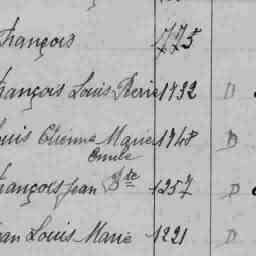 François 775
François Louis Pierre 1732 D
Louis Etienne Marie 1748 D
Emile
François Jean Bte 1257 D
Jean Louis Marie 1221 D